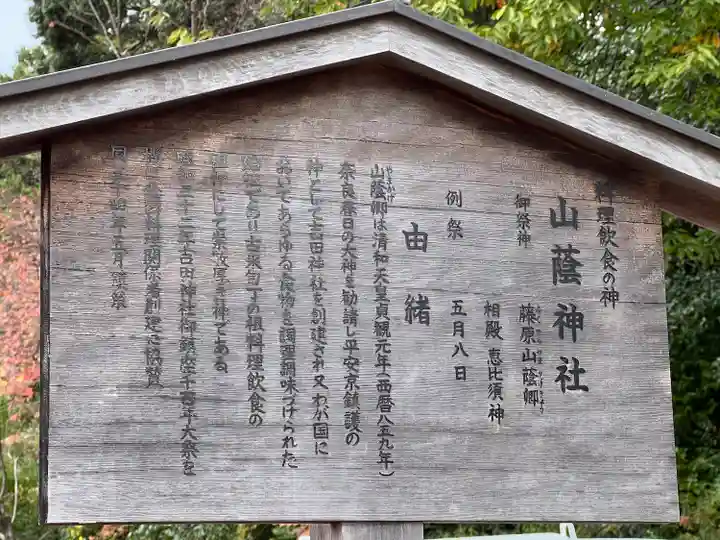 料理飲食の神
山蔭神社
御祭神 藤原山蔭卿
相殿 恵比須神
例祭 五月八日
由緒
やまかげ
山蔭卿は清和天皇貞観元年(西暦八五九年)
奈良春日の大神を勧請し平安京鎮護の
神として吉田神社を創建され又わが国に
おいてあらゆる食物を調理調味づけられた
始祖であり古来包丁の祖料理飲食の
祖神にして崇敬厚き神である、
昭和三十二年吉田神社御鎮座千百年大祭を
料理関係者創建に協賛
同三十四年五月鎮祭